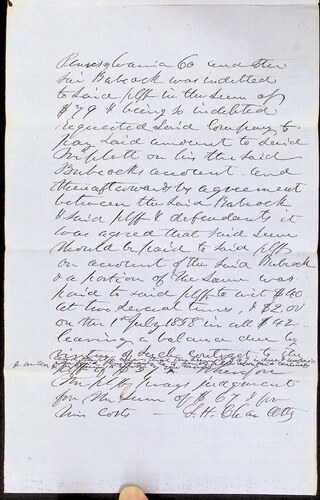 Pennsylvania Co and the
sin Babcock was indebted
to said plff in the sum of
$79 & being so indebted
requested said Company to
pay said amount to said
Complett on his the said
Babcocks account and
thereafterwards by agreement
between the said Babcock
& said plff & defendants it
was agreed that said sum
should be paid to said plff
on account of the said Babcock
& a portion of the same was
paid to said plff to wit $40
at two several times, & $2.00
on the 1st July 1858 in all $42
leaving a balance due by
virtue of such contract to the
plff of $37 Wherefore
Complff prays judgement
for the sum of $67 & for
his costs
Atty